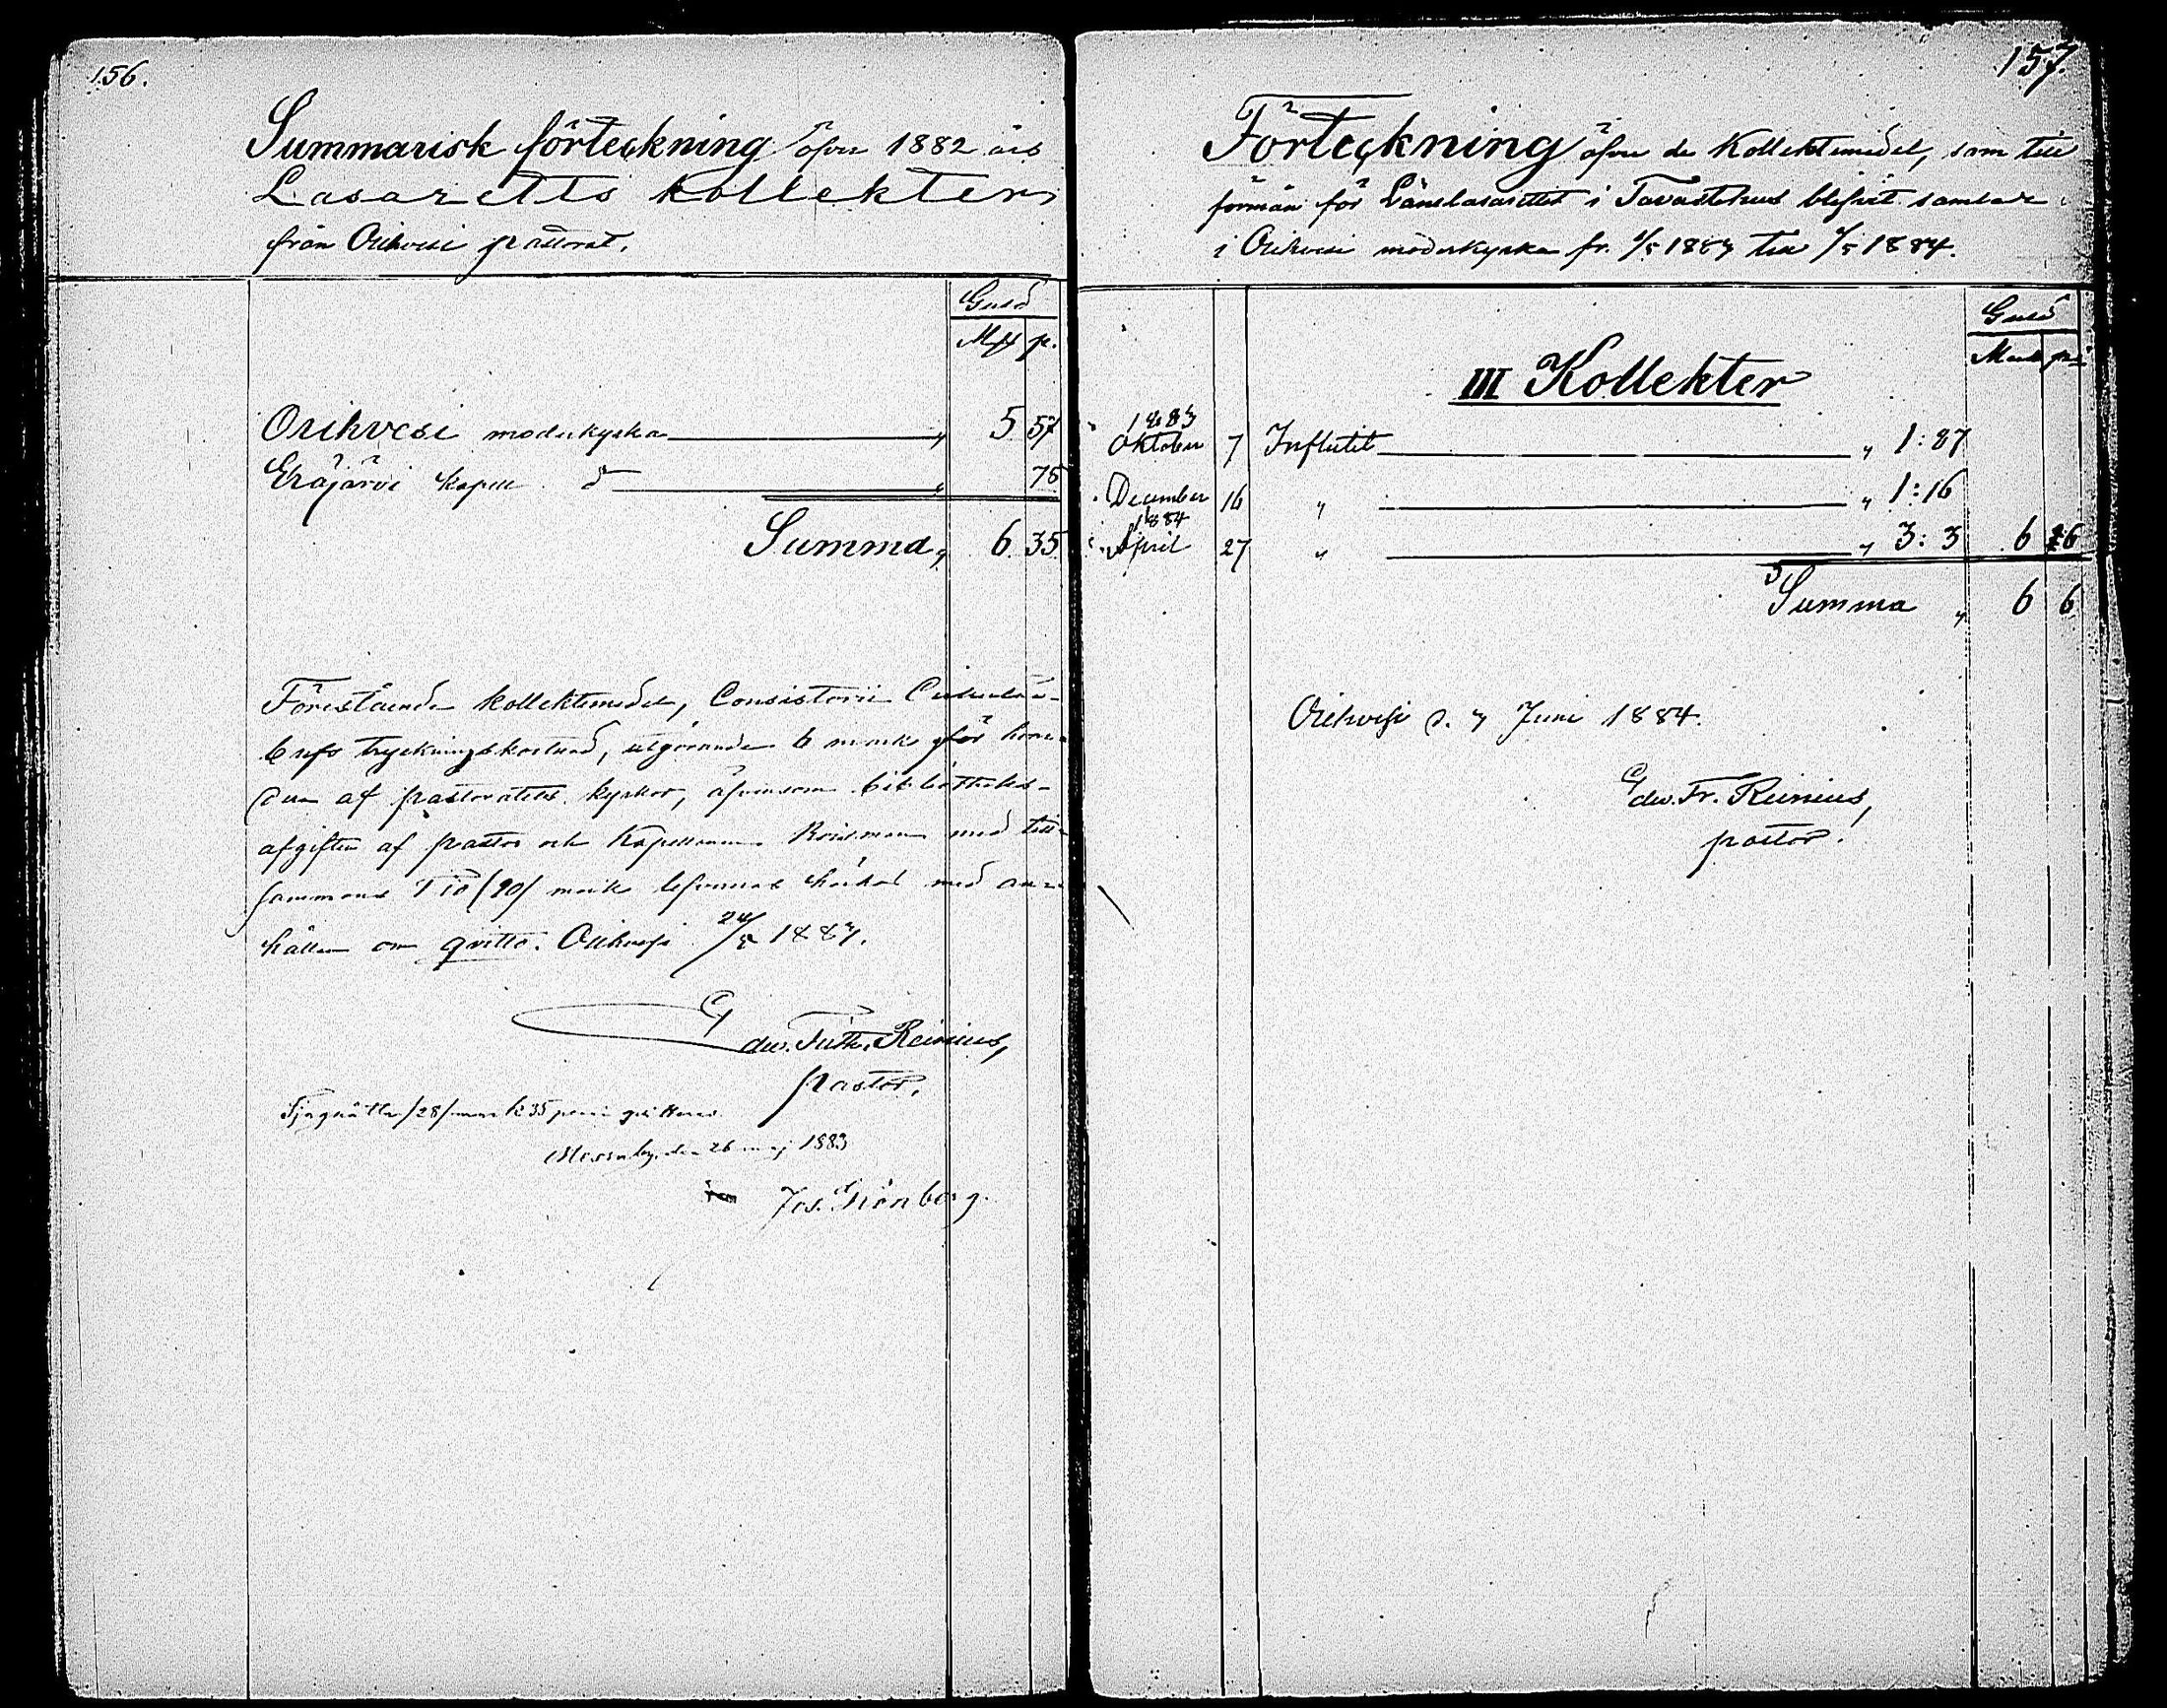 156.
Summarisk förteckning öfver 1882 års
Lasaretts kollekter
från Orihvesi pastorat.
Guld
Mk p.
Orihvesi moderkyrka " 5 57
Eräjärvi kapell d:o " 78
Summa " 6. 35.
Förestående kollektmedel, Consistorii Cirkulär-
brefs tryckningskostnad, utgörande 6 mark för hvar-
dera af pastoratets kyrkor, äfvensom bibliotheks-
afgiften af pastor och kapellanen med till-
sammans Tio /10/ mark härhos med an-
hållan om qvitto. Orihvesi 24/5 1883.
Edw. Fr. Reinius,
pastor.
Tjuguåtta /28/ mark 35 penni qvitteras
den 26 maj 1883
Jos. Grönberg.
157.
Förteckning öfver de Kollektmedel, som till
förmån för Länslasarettet i Tavastehus blifvit samlade
i Orihvesi moderkyrka fr. 1/5 1883 till 1/5 1884.
Guld
Mark p:i
III Kollekter
1883
Oktober 7 Influtit " 1: 87
December 16 " " 1: 16
1884
April 27 " " 3: 3 6 6
Summa " 6 6
Orihvesi d. 3 Juni 1884.
Edw. Fr. Reinius,
pastor.